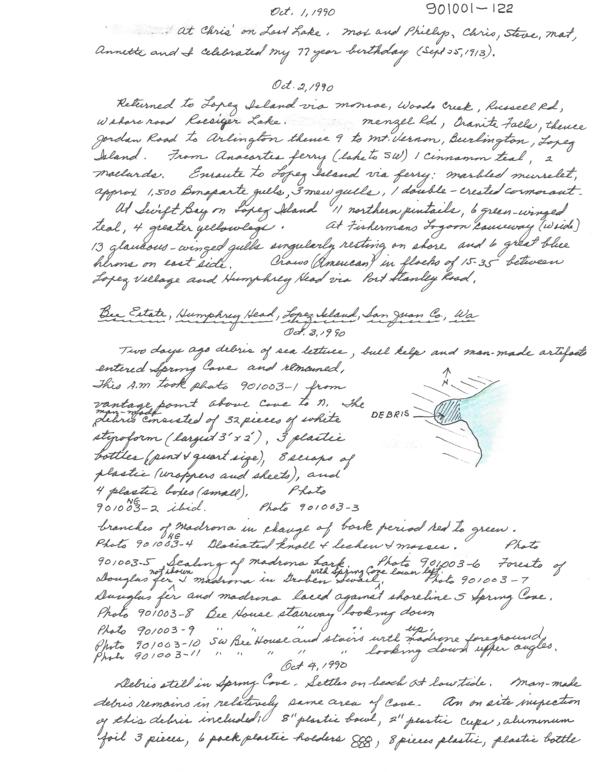 Oct. 1, 1990
901001-122
At Chris' on Lost Lake. Max and Phillip, Chris, Steve, Mat,
Annette and I celebrated my 77 year birthday (Sept 25, 1913).
Oct. 2, 1990
Returned to Lopez Island via Monroe, Woods Creek, Russell Rd,
W shore road Roesiger Lake. Menzell Rd, Granite Falls, thence
Jordan Road to Arlington thence 9 to Mt. Vernon, Burlington, Lopez
Island. From Anacortes ferry (lake to SW) 1 cinnamon teal, 2
mallards. Enroute to Lopez Island via ferry: marbled murrelet,
approx 1,500 Bonaparte gulls, 3 mew gulls, 1 double-crested cormorant.
At Swift Bay on Lopez Island 11 northern pintails, 6 green-winged
teal, 4 greater yellowlegs. At Fishermans Lagoon causeway (W side)
13 glaucous-winged gulls singularly resting on shore and 6 great blue
herons on east side. Crows (American) in flocks of 15-35 between
Lopez Village and Humphrey Head via Port Stanley Road.
Bee Estate, Humphrey Head, Lopez Island, San Juan Co, Wa
Oct. 3, 1990
Two days ago debris of sea lettuce, bull kelp and man-made artifacts
entered Spring Cove and remained.
This A.M took photo 901003-1 from
vantage point above cove to N. The
man-made
debris consisted of 32 pieces of white
styroform (largest 3' x 2'), 3 plastic
bottles (pint & quart size), 8 scraps of
plastic (wrappers and sheets), and
4 plastic boxes (small). Photo
901003-2 ibid. Photo 901003-3
N
DEBRIS
branches of Madrona in change of bark period red to green.
Photo 901003-4 Glaciated knoll & lichen & mosses. Photo
901003-5 Scaling of madrona bark. Photo 901003-6 Forests of
not shown with Spring Cove lower left.
Douglas fir & madrona in Photo 901003-7
Douglas fir and madrona laced against shoreline S Spring Cove.
Photo 901003-8 Bee House stairway looking down
Photo 901003-9 " " " " up.
Photo 901003-10 SW Bee House and stairs with madrone foreground
Photo 901003-11 " " " " " looking down upper angles.
Oct 4, 1990
Debris still in Spring Cove. Settles on beach at low tide. Man-made
debris remains in relatively same area of cove. An on site inspection
of this debris included: 8" plastic bowl, 2" plastic cups, aluminum
foil 3 pieces, 6 pack plastic holders, 8 pieces plastic, plastic bottle